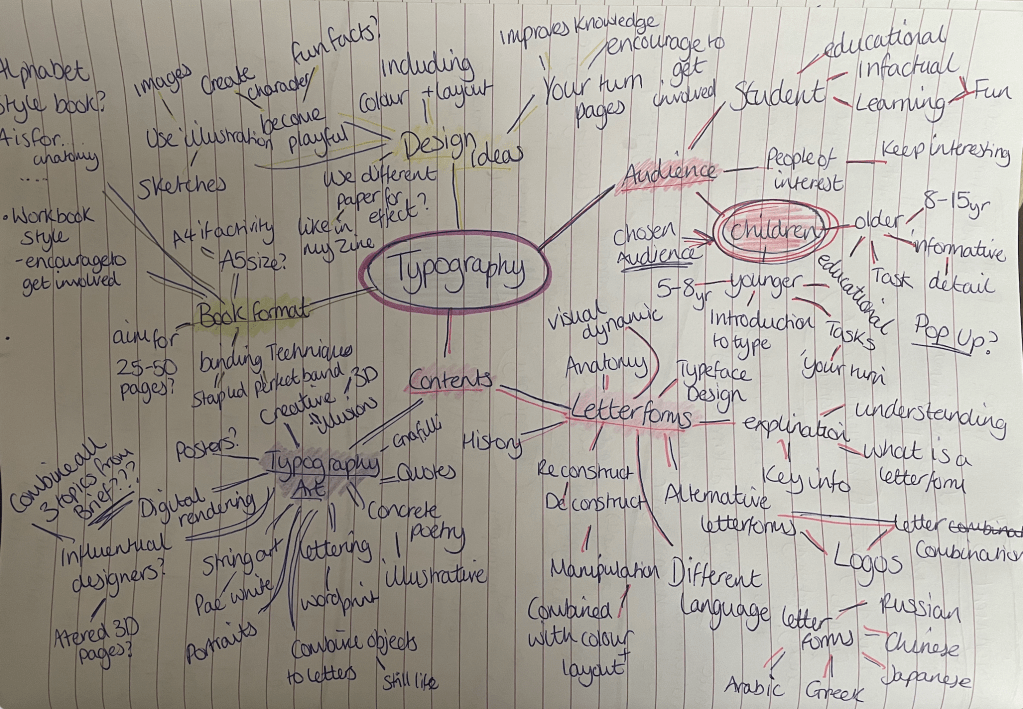 Alphabet
style book?
A is for...
anatomy
....
• Workbook
style
- encourage to
get involved
images
Create
character
fun facts?
Use illustration
become
playful
sketches
Including
Colour + layout
Design
Ideas
Use different
paper for
effect?
like in
my zine
improves knowledge
encourage to
get
involved
Your turn
pages
Typography
Book format
A4 if activity
A5 size?
aim for
25-50
pages?
binding Techniques
Stapled perfect band
Audience
Student
educational
infactual
Learning
Fun
People of
interest
Keep interesting
children
chosen
Audience
older
8-15yr
informative
detail
Task
educational
younger
5-8yr
Introduction
to type
Tasks
'your turn
Pop Up?
Contents
Letterforms
visual
dynamic
Anatomy
Typeface
Design
History
explination
understanding
what is a
letterform
Key info
Reconstruct
Deconstruct
Manipulation
Combined
with colour
layout +
Alternative
letterforms
letter combined
Combination
Logos
Different
Language
letter
forms
Russian
Chinese
Japanese
Greek
Arabic
Typography
Art
Creative
3D
illusions
Posters?
Quotes
Concrete
poetry
illustrative
Digital
rendering
Combine all
3 topics from
Brief???
Influentual
designers?
Atered 3D
pages?
String art
Pae white
Portraits
lettering
wordprint
Combine objects
to letters
Still life